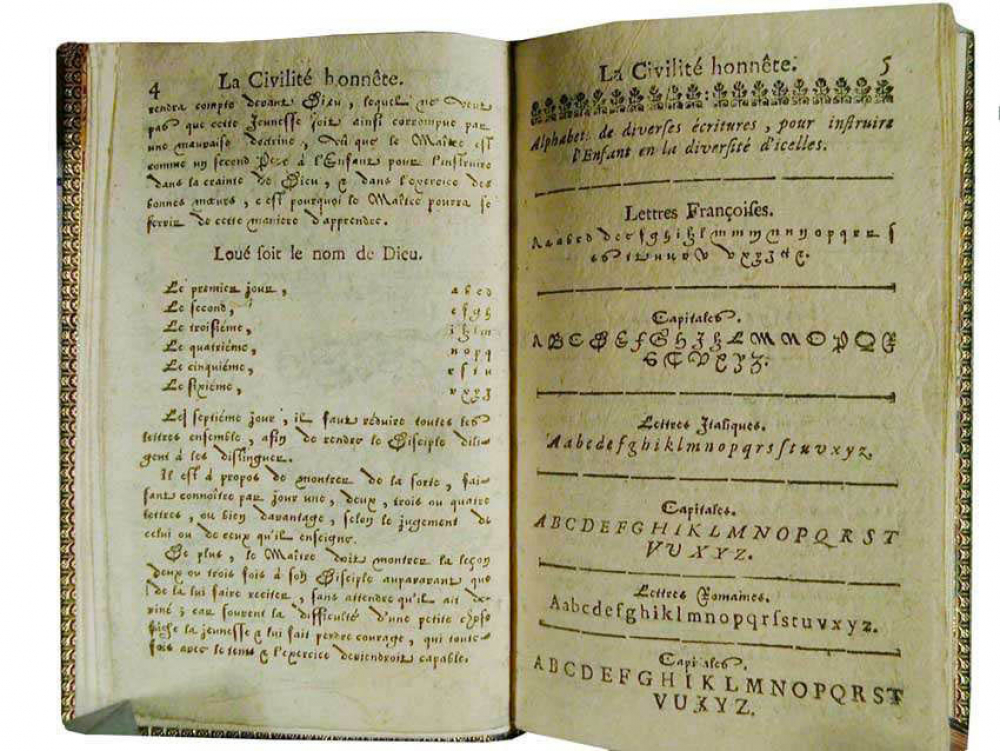 4 La Civilité honnête.
rendra compte devant Dieu, lequel ne veut
pas que cette Jeunesse soit ainsi corrompue par
une mauvaise doctrine, vû que le Maître est
comme un second Pere à l'Enfant pour l'instruire
dans la crainte de Dieu, & dans l'exercice des
bonnes mœurs, c'est pourquoi le Maître pourra se
servir de cette maniere d'apprendre.
Loué ſoit le nom de Dieu.
Le premier jour, a b c d
Le second, e f g h
Le troisiéme, i k l m
Le quatriéme, n o p q
Le cinquiéme, r s t u
Le sixiéme, v x y z
Le septiéme jour, il faut réduire toutes les
lettres ensemble, afin de rendre le Disciple dili-
gent à les distinguer.
Il est à propos de montrer de la sorte, fai-
sant connoître par jour une, deux, trois ou quatre
lettres, ou bien davantage, selon le jugement de
celui ou de ceux qu'il enseigne.
De plus, le Maître doit montrer la leçon
deux ou trois fois à son Disciple auparavant que
de la lui faire reciter, sans attendre qu'il ait de-
viné; car souvent la difficulté d'une petite chose
fâche la jeunesse & lui fait perdre courage, qui toute-
fois avec le tems & l'exercice deviendroit capable.
La Civilité honnête. 5
Alphabets de diverſes écritures, pour inſtruire
l'Enfant en la diverſité d'icelles.
Lettres Françoiſes.
Capitales.
Lettres Italiques.
Aabcdefghiklmnopqrsſtuvxyz
Capitales.
ABCDEFGHIKLMNOPQRST
VUXYZ.
Lettres Romaines.
Aabcdefghiklmnopqrſstuvxyz.
Capitales.
ABCDEFGHIKLMNOPQRST
VUXYZ.